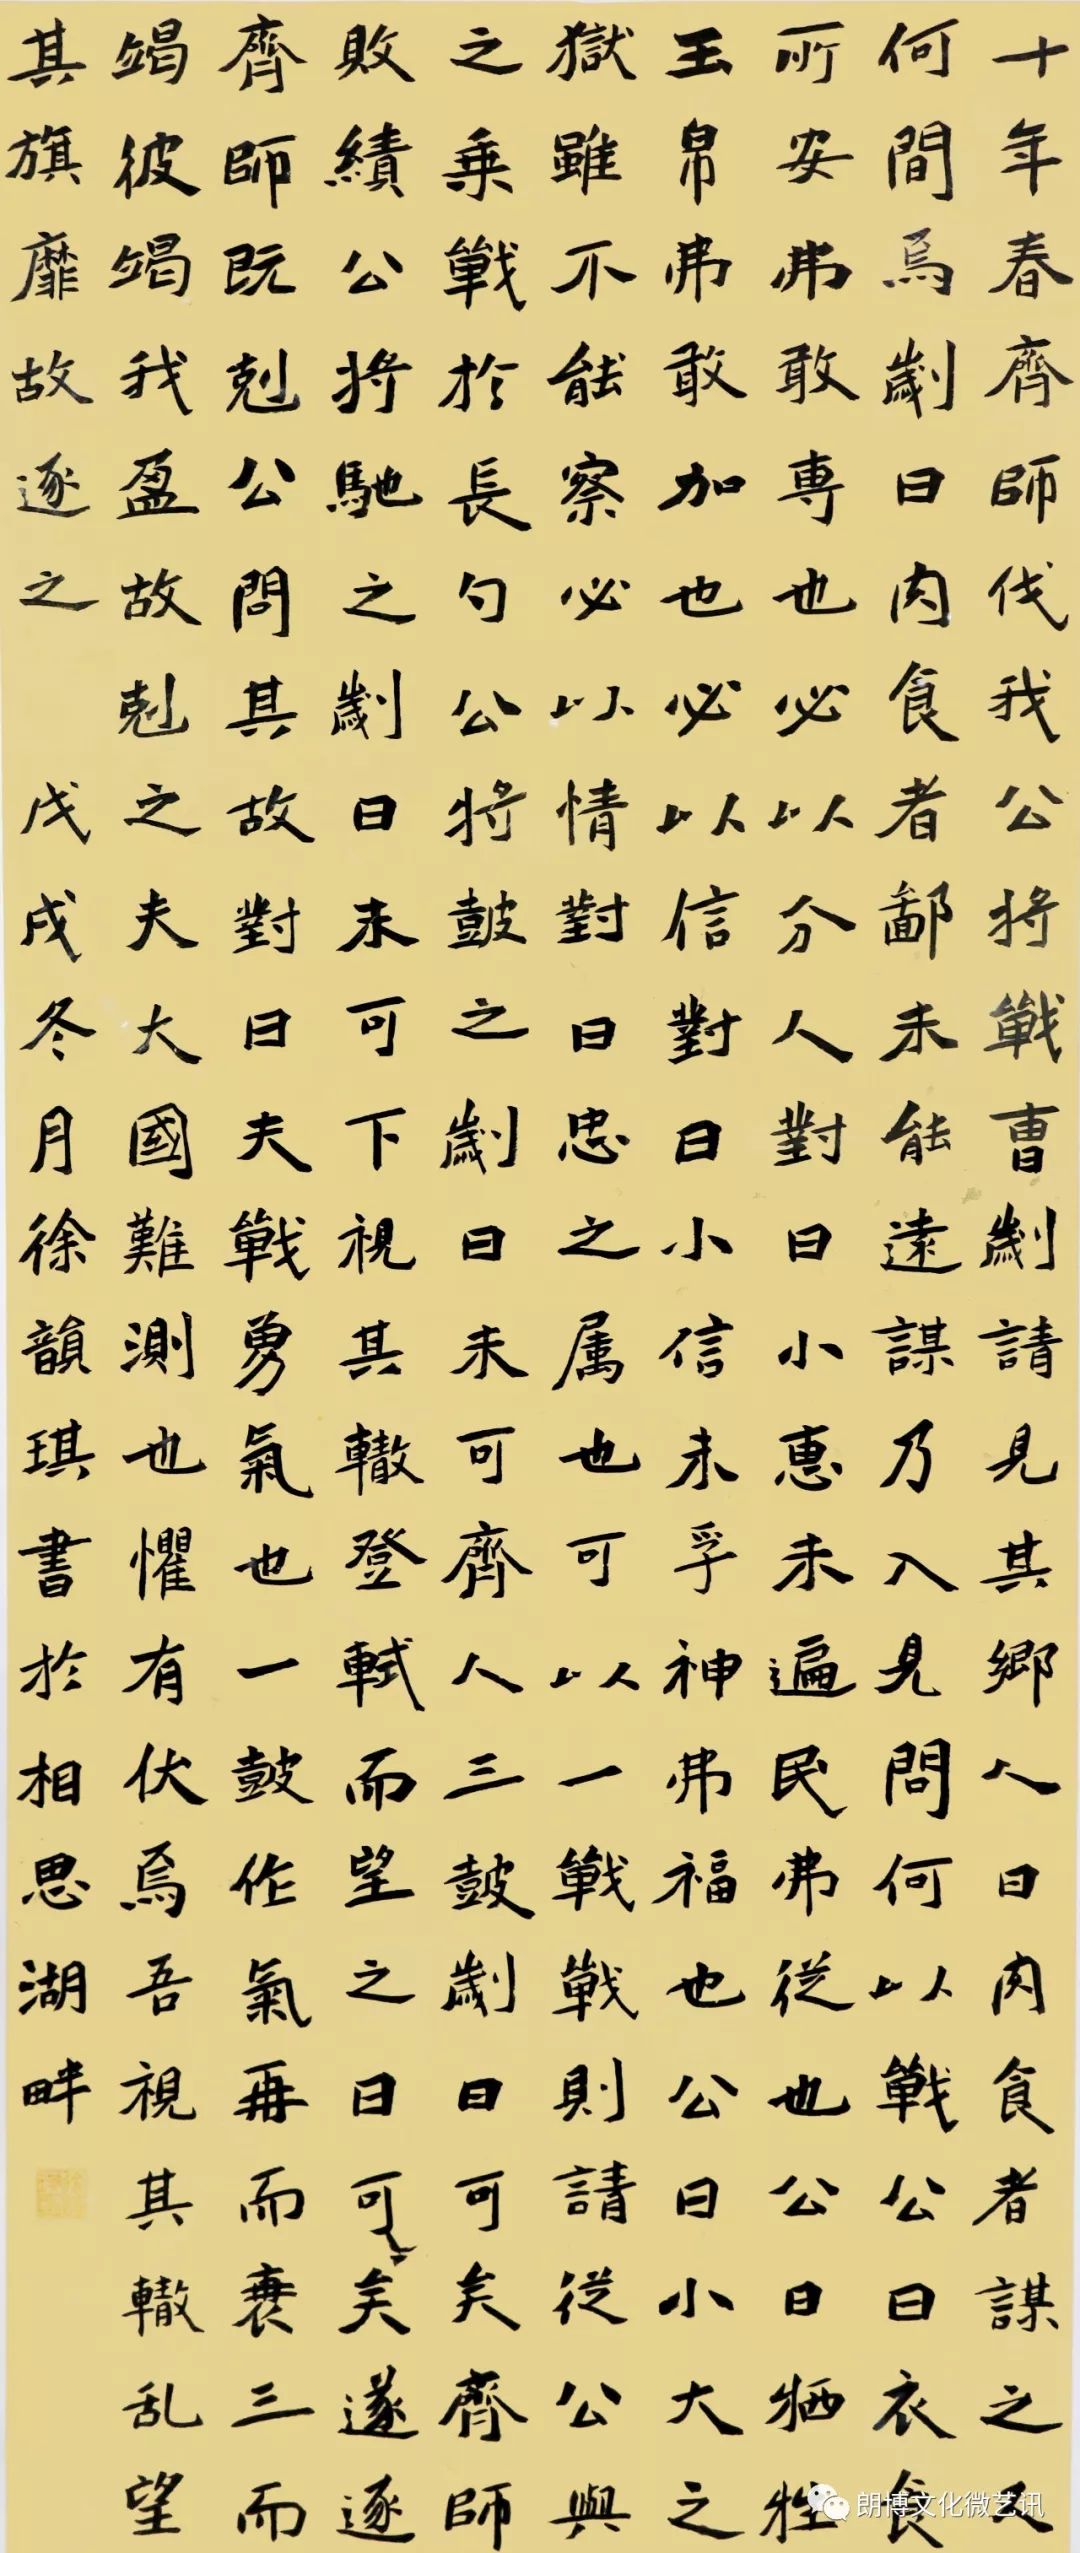 十年春齊師伐我公将戰曹劌請見其鄉人曰肉食者謀之又
何間焉劌曰肉食者鄙未能遠謀乃入見問何以戰公曰衣食
所安弗敢専也必以分人對曰小惠未遍民弗從也公曰牺牲
玉帛弗敢加也必以信對曰小信未孚神弗福也公曰小大之
獄雖不能察必以情對曰忠之属也可以一戰戰則請從公與
之乗戰於長勺公将鼓之劌曰未可齊人三鼓劌曰可矣齊師
敗績公将馳之劌曰未可下視其轍登軾而望之曰可矣遂逐
齊師既剋公問其故對曰夫戰勇氣也一鼓作氣再而衰三而
竭彼竭我盈故剋之夫大國難測也懼有伏焉吾視其轍乱望
其旗靡故逐之 戊戌冬月徐韻琪書於相思湖畔
朗博文化微艺讯